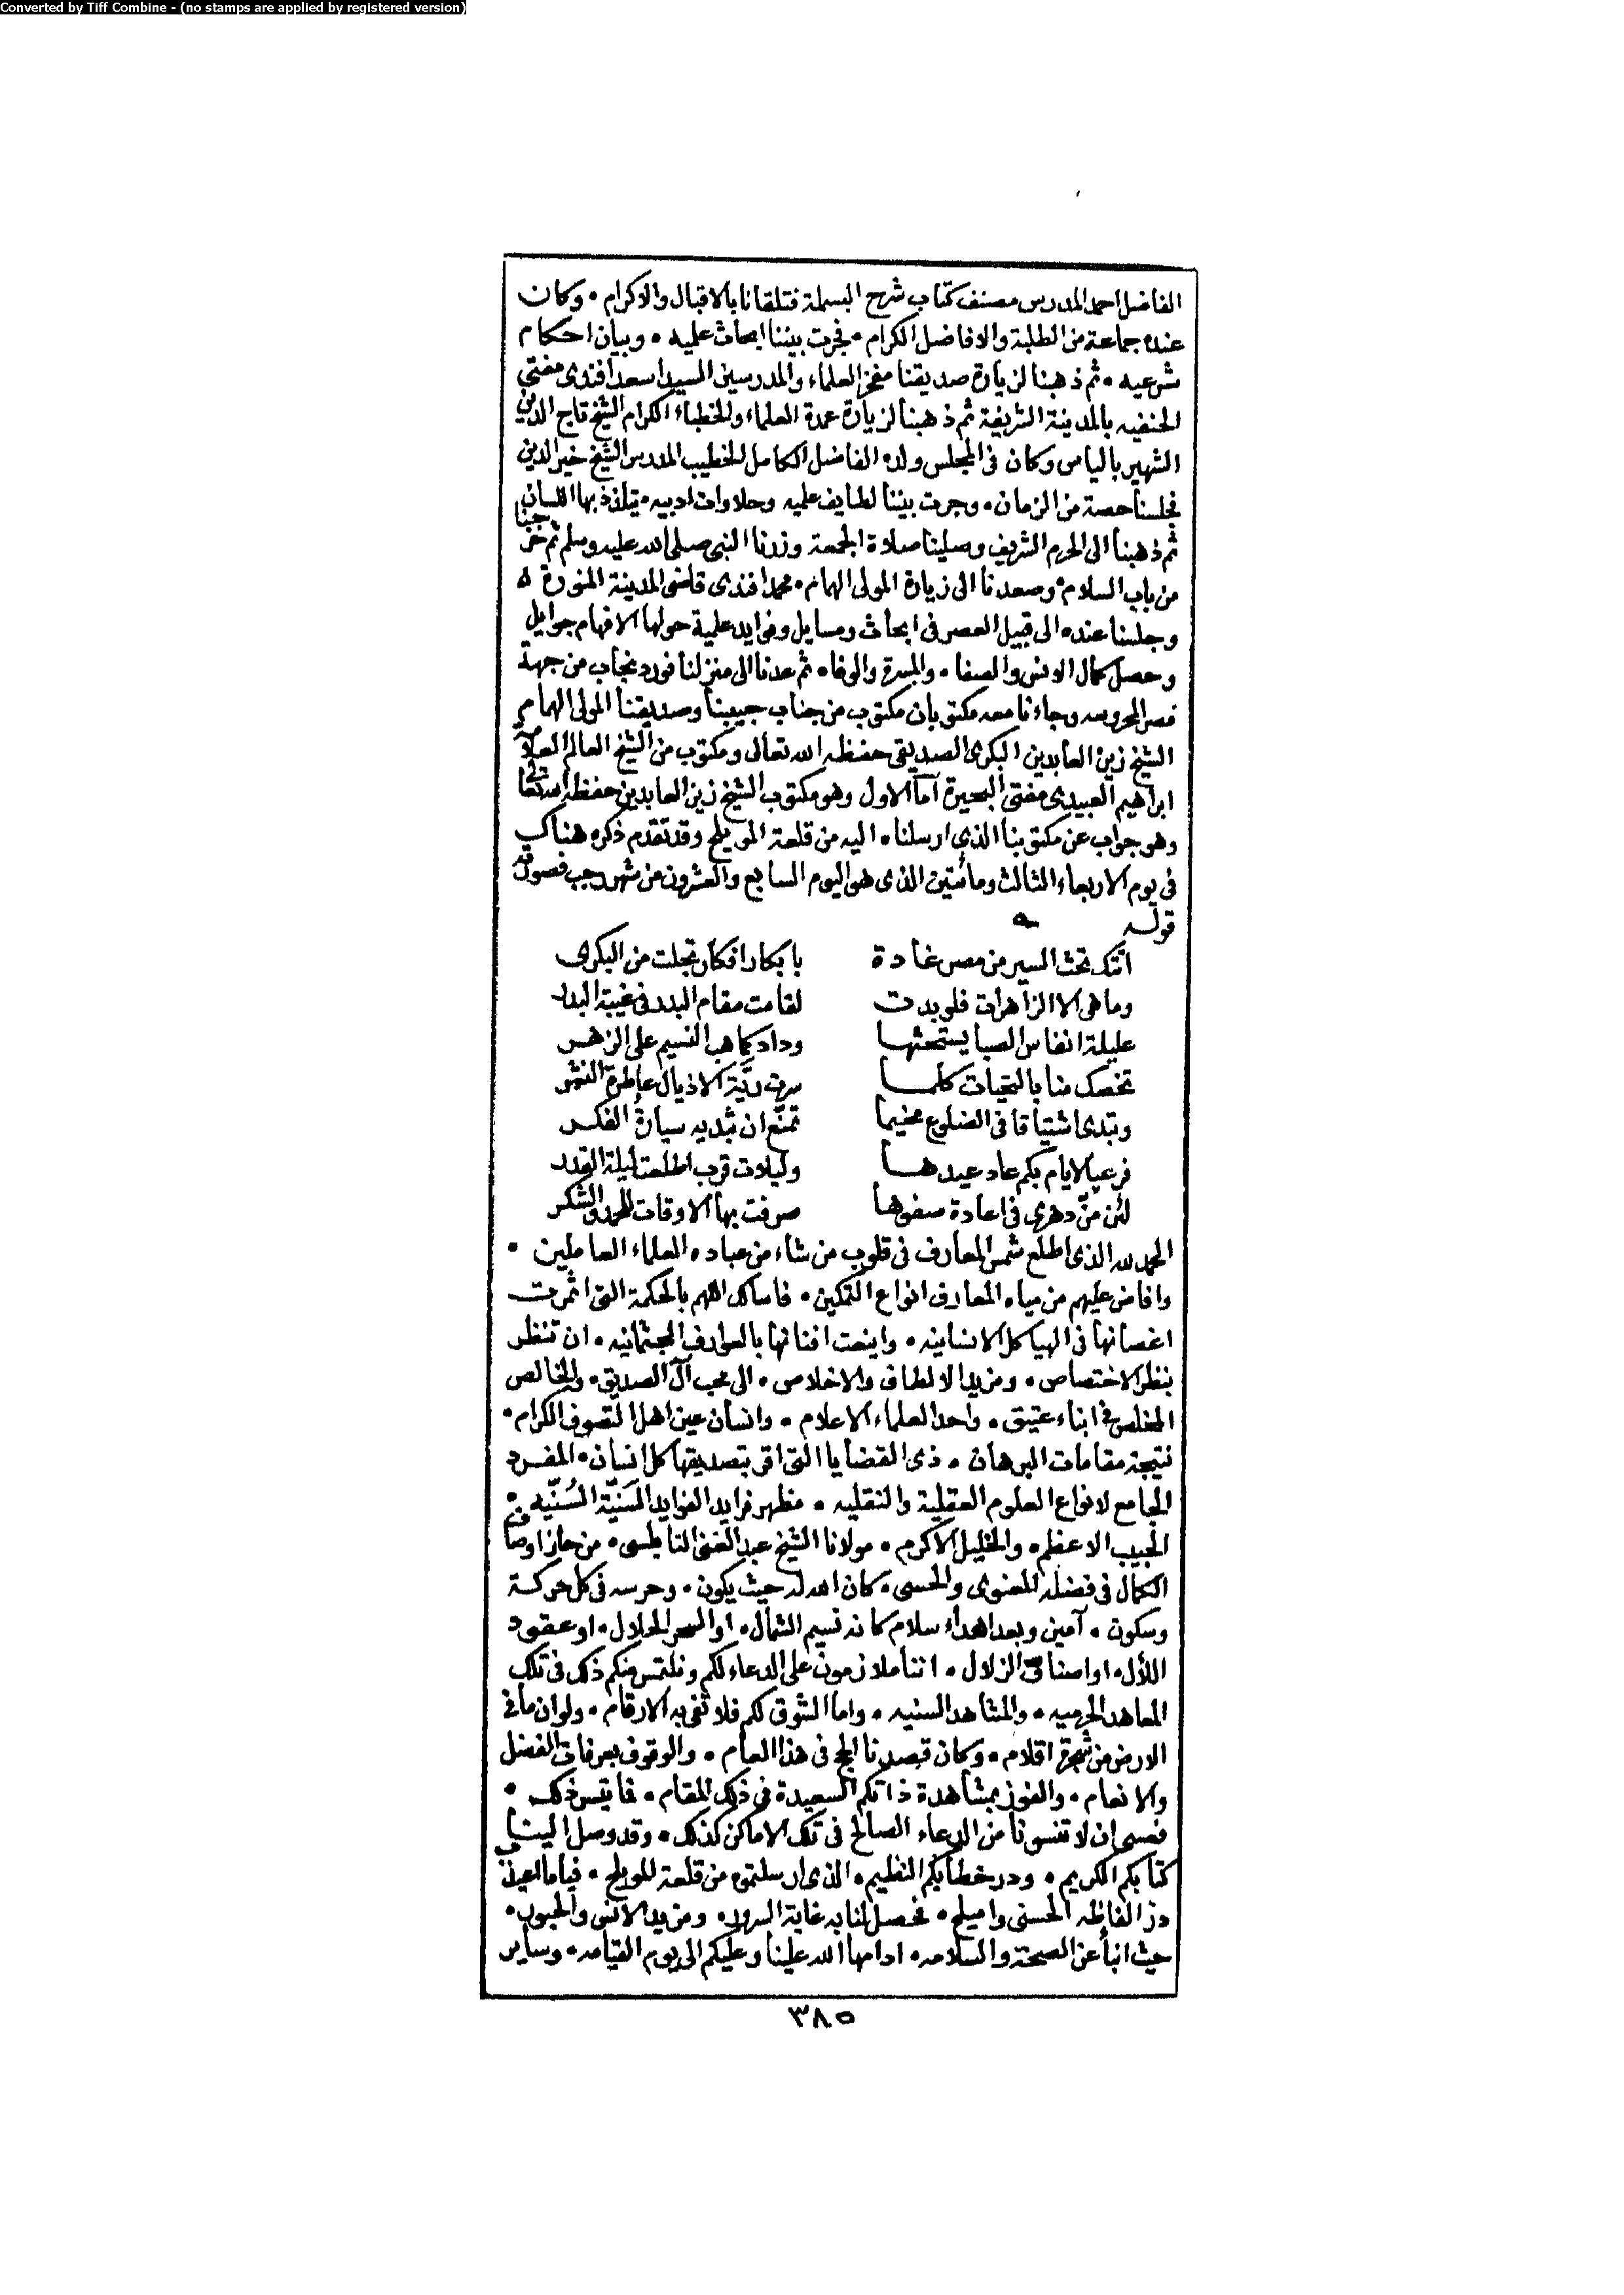 Converted by Tiff Combine - (no stamps are applied by registered version)
الفاضل احمد المدرس مصنف كتاب شرح البسملة فتلقانا بالاقبال والاكرام • وكان
عنده جماعة من الطلبة والافاضل الكرام • فجرت بيننا ابحاث علميه • وبيان احكام
شرعيه • ثم ذهبنا لزيارة صديقنا مفخر العلماء والمدرسين السيد اسعد افندى مفتي
الحنفيه بالمدينة الشريفة ثم ذهبنا لزيارة عمدة العلماء والخطباء الكرام الشيخ تاج الدين
الشهير بالياس وكان فى المجلس ولده الفاضل الكامل الخطيب المدرس الشيخ خير الدين
فجلسنا حصة من الزمان • وجرت بيننا لطايف علميه وحلاوات ادبيه • يتلذذ بها اللسان
ثم ذهبنا الى الحرم الشريف وصلينا صلاة الجمعة وزرنا النبى صلى الله عليه وسلم ثم خرجنا
من باب السلام • وصعدنا الى زيارة المولى الهمام • محمد افندى قاضى المدينة المنورة ه
وجلسنا عنده الى قبيل العصر فى ابحاث ومسايل وفوايد علمية حولها الافهام جوايل
وحصل كمال الانس والصفا • والمسرة والوفا • ثم عدنا الى منزلنا فورد نجاب من جهة
مصر المحروسه وجاءنا معه مكتوبان مكتوب من جناب حبيبنا وصديقنا المولى الهمام
الشيخ زين العابدين البكرى الصديقى حفظه الله تعالى ومكتوب من الشيخ العالم العلامة
ابراهيم العبيدى مفتى البحيرة اما الاول وهو مكتوب الشيخ زين العابدين حفظه الله تعالى
وهو جواب عن مكتوبنا الذى ارسلناه اليه من قلعة المويلح وقد تقدم ذكره هناك
فى يوم الاربعاء الثالث ومائتين الذى هو اليوم السابع والعشرون من شهر رجب فصورة
قوله
اتتك تحث السير من مصر غادة بابكار افكار تجلت من البكرى
وما هى الا الزاهرات فلو بدت لقامت مقام البدر فى غيبة البدر
عليلة انفاس الصبا يستحثها وداد كما هب النسيم على الزهر
تخصك منا بالتحيات كلما سرت ريّة الاذيال عاطرة النشر
وتبدى اشتياقا فى الضلوع مخيما تمنّع ان تبديه سيارة الفكر
فرعيا لايام بكم عاد عيدها وليلات قرب اطلعت ليلة القدر
لئن منّ دهرى فى اعادة صفوها صرفت بها الاوقات للحمد والشكر
الحمد لله الذى اطلع شمس المعارف فى قلوب من شاء من عباده العلماء العاملين •
وافاض عليهم من مياه المعارف انواع التمكين • فاسالك اللهم بالحكمة التى اثمرت
اغصانها فى الهياكل الانسانيه • واينعت افنانها بالعوارف الجثمانيه • ان تنظر
بنظر الاختصاص • ومزيد الالطاف والاخلاص • الى محب آل الصديق • والخالص
المخلص فى ابناء عتيق • واحد العلماء الاعلام • وانسان عين اهل التصوف الكرام •
نتيجة مقامات البرهان • ذى القضايا التى اقر بتصديقها كل انسان • المفرد
الجامع لانواع العلوم العقلية والنقليه • مظهر فرايد الفوايد السَنيّة السُنّيه •
الحبيب الاعظم • والخليل الاكرم • مولانا الشيخ عبد الغنى النابلسى • من حاز اوصاف
الكمال فى فضله المعنوى والحسى • كان الله له حيث يكون • وحرسه فى كل حركة
وسكون • آمين وبعد اهداء سلام كانه نسيم الشمال • او السحر الحلال • او عقود
اللأل • او اصفا من الزلال • اننا ملازمون على الدعاء لكم ونلتمس منكم ذلك فى تلك
المعاهد الحرميه • والمشاهد السنيه • واما الشوق لكم فلا تفى به الارقام • ولو ان ما فى
الارض من شجرة اقلام • وكان قصدنا الحج فى هذا العام • والوقوف بعرفات الفضل
والانعام • والفوز بمشاهدة ذاتكم السعيدة فى ذلك المقام • فما تيسر ذلك •
فعسى ان لا تنسونا من الدعاء الصالح فى تلك الاماكن كذلك • وقد وصل الينا
كتابكم الكريم • ودر خطابكم النظيم • الذى ارسلتموه من قلعة المويلح • فياما اعيذ
در الفاظه الحسنى واميلح • فحصل لنا به غاية السرور • ومزيد الانس والحبور •
حيث انبأ عن الصحة والسلامه • ادامها الله علينا وعليكم الى يوم القيامه • وساير
٣٨٥